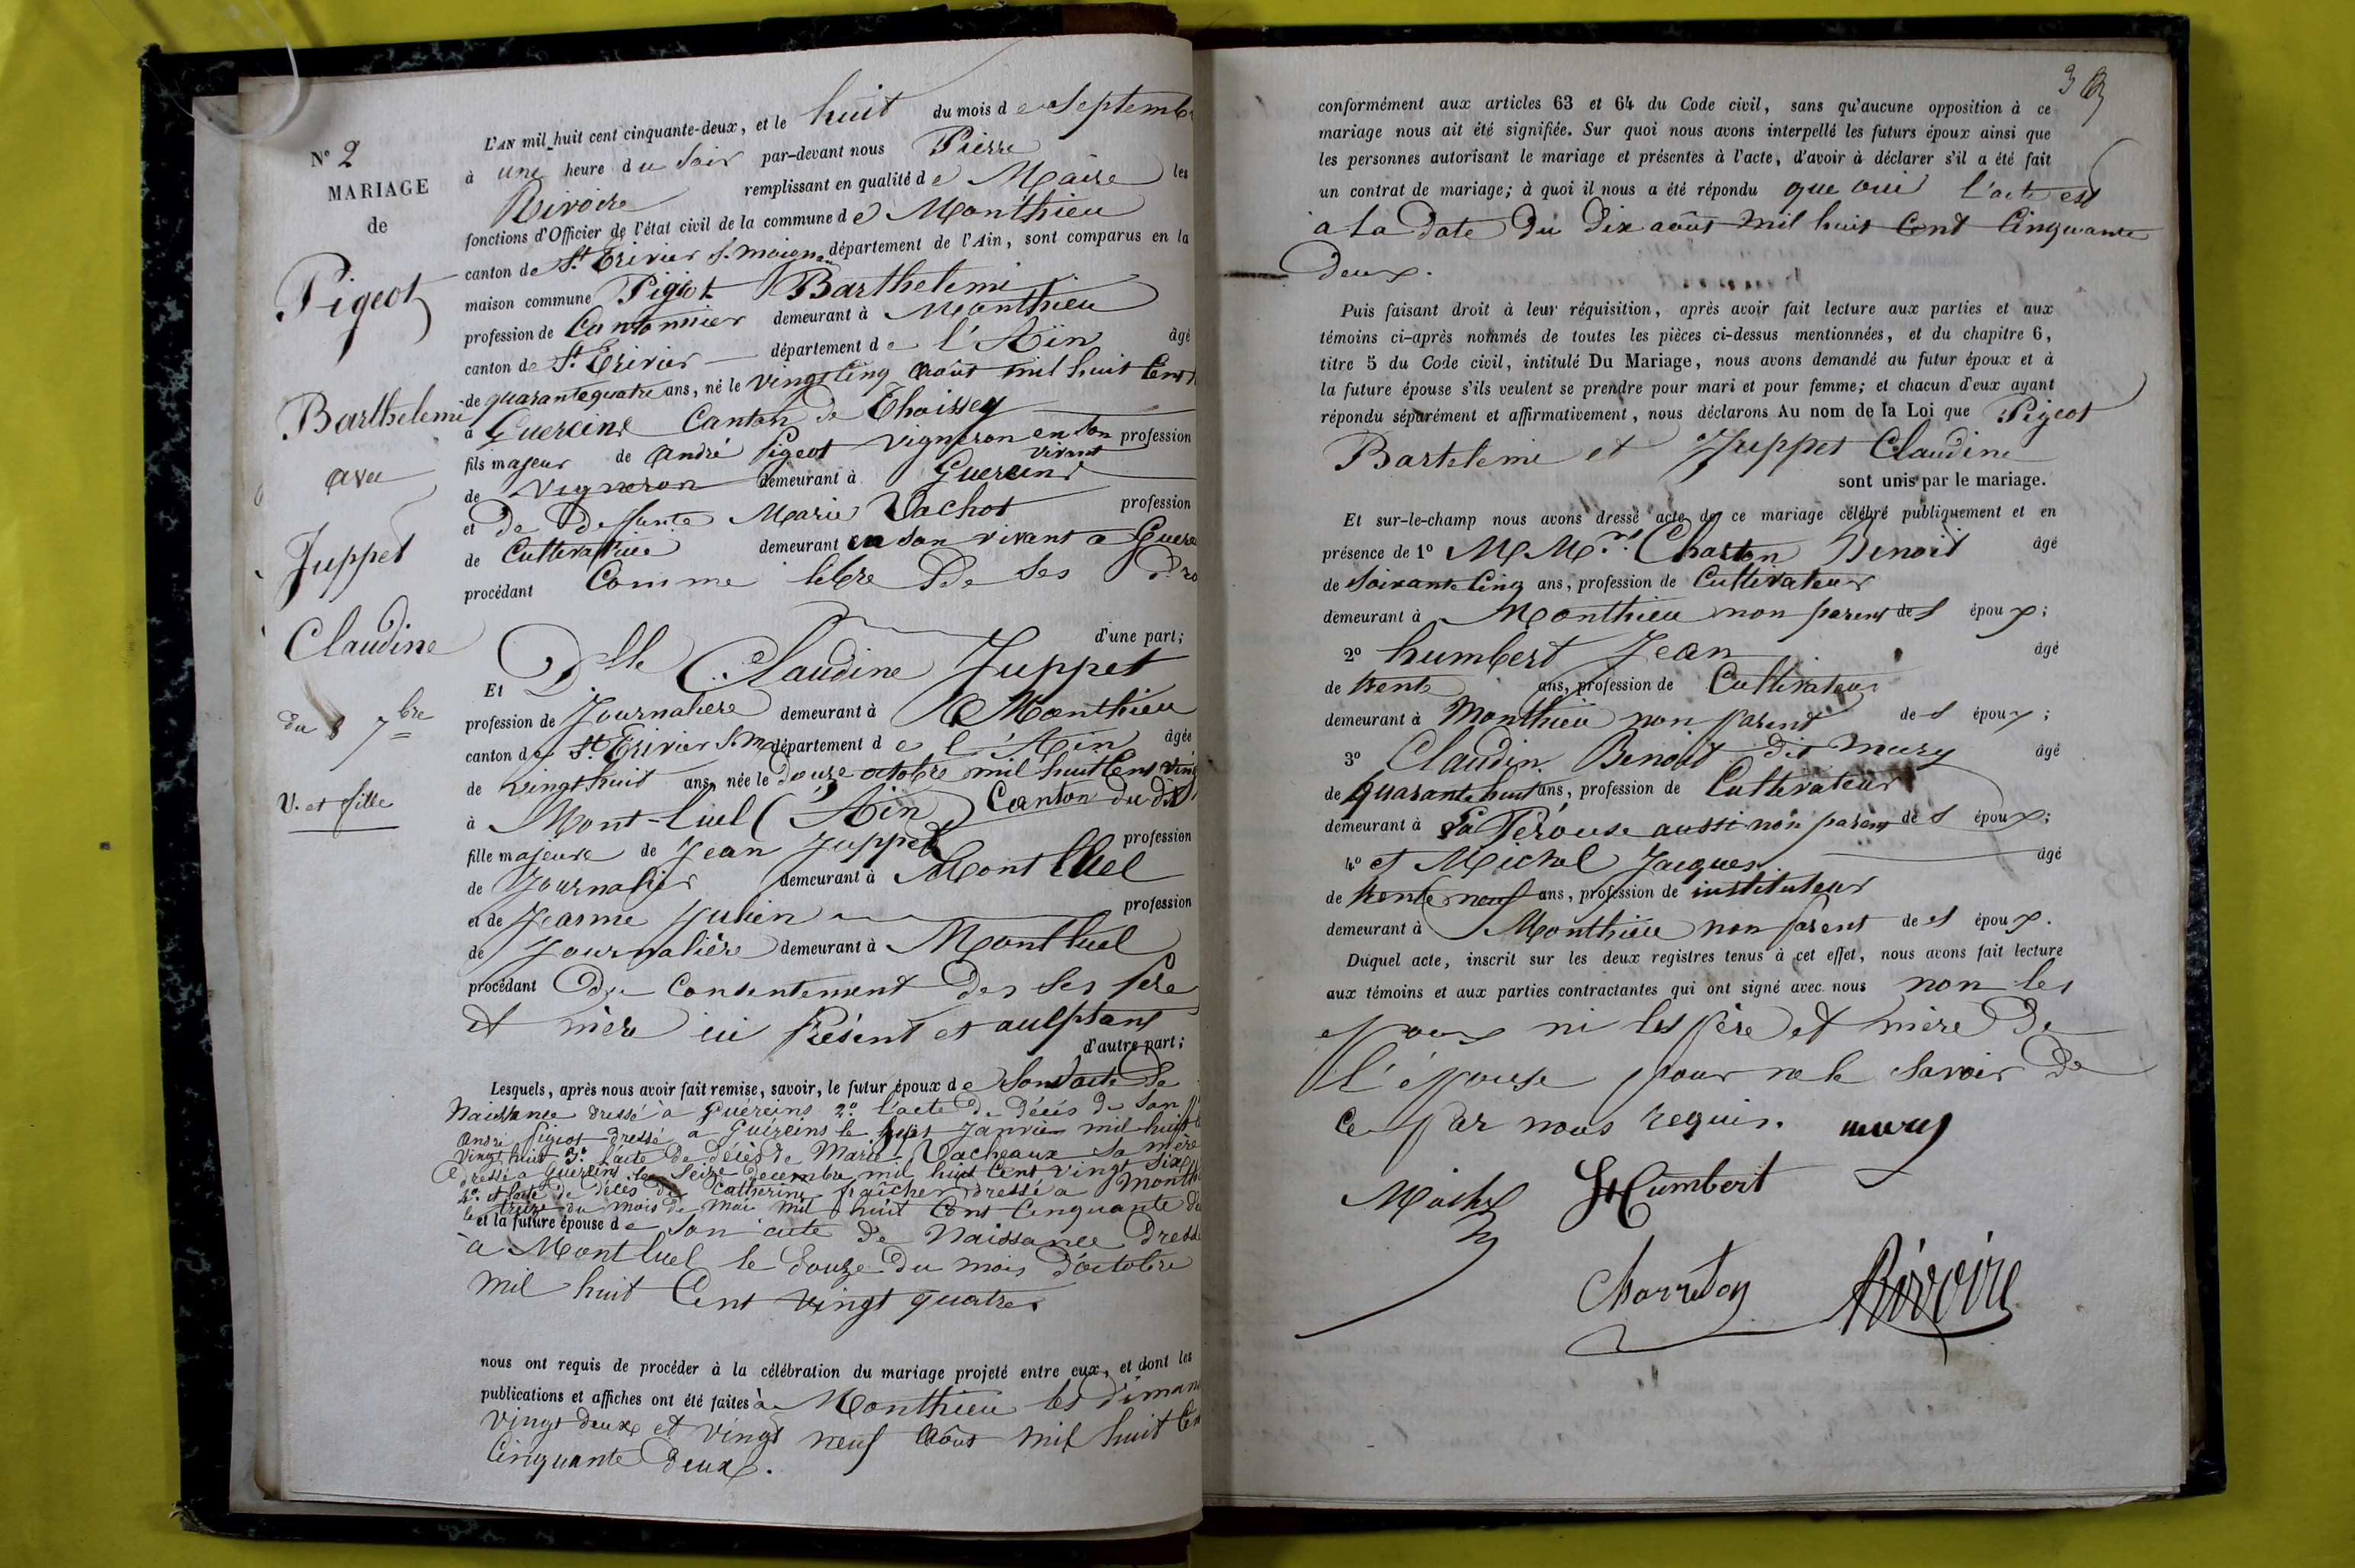 N° 2
MARIAGE
de
Pigeot
Barthelemi
avec
Juppet
Claudine
du 8 7bre
V. et fille
L'AN mil huit cent cinquante-deux, et le huit du mois de Septemb
à une heure du soir par-devant nous Pierre
Rivoire remplissant en qualité de Maire les
fonctions d'Officier de l'état civil de la commune de Monthieu
canton de St. Trivier s. moignan département de l'Ain, sont comparus en la
maison commune Pigeot Barthelemi
profession de Cantonnier demeurant à Monthieu
canton de St. Trivier département de l'Ain âgé
de quarante quatre ans, né le vingt cinq août mil huit Cent
à Guereins Canton de Thoissey
fils majeur de André Pigeot vigneron en son vivant profession
de Vigneron demeurant à Guereins
et de Defunte Marie Vachot profession
de Cultivatrice demeurant en son vivant a Guere
procédant Comme libre De Ses Dro
d'une part;
Et Dlle Claudine Juppet
profession de Journalière demeurant à Monthieu
canton de St. Trivier S. m département de l'Ain âgée
de vingt huit ans, née le douze octobre mil huit Cent ving
à Mont-luel (Ain) Canton du dit
fille majeure de Jean Juppet profession
de Journalier demeurant à Mont luel
et de Jeanne Julien profession
de Journalière demeurant à Mont luel
procédant du Consentement des ses père
et mère ici Présent et
d'autre part;
Lesquels, après nous avoir fait remise, savoir, le futur époux de Son acte de
Naissance dressé à Guéreins 2° l'acte de décès de Son
André Pigeot dressé a Guéreins le Janvier mil huit
Vingt huit 3° l'acte de décès de Marie Vacheaux sa mère
dressé a Guereins le Seize Decembre mil huit Cent vingt six
4° et l'acte de décès de Catherine dressé a Month
le treize du mois de Mai mil huit Cent Cinquante
et la future épouse de Son acte de Naissance Dress
à Mont luel le douze du mois d'octobre
mil huit Cent vingt quatre
nous ont requis de procéder à la célébration du mariage projeté entre eux, et dont les
publications et affiches ont été faites à Monthieu les diman
vingt deux et vingt neuf Août mil huit Cen
Cinquante deux.
conformément aux articles 63 et 64 du Code civil, sans qu'aucune opposition à ce
mariage nous ait été signifiée. Sur quoi nous avons interpellé les futurs époux ainsi que
les personnes autorisant le mariage et présentes à l'acte, d'avoir à déclarer s'il a été fait
un contrat de mariage; à quoi il nous a été répondu que oui l'acte est
a la Date du Dix août mil huit Cent Cinquante
Deux.
Puis faisant droit à leur réquisition, après avoir fait lecture aux parties et aux
témoins ci-après nommés de toutes les pièces ci-dessus mentionnées, et du chapitre 6,
titre 5 du Code civil, intitulé Du Mariage, nous avons demandé au futur époux et à
la future épouse s'ils veulent se prendre pour mari et pour femme; et chacun d'eux ayant
répondu séparément et affirmativement, nous déclarons Au nom de la Loi que Pigeot
Bartelemi et Juppet Claudine
sont unis par le mariage.
Et sur-le-champ nous avons dressé acte de ce mariage célébré publiquement et en
présence de 1° M M.rs Charton Benoit âgé
de Soixante Cinq ans, profession de Cultivateur
demeurant à Monthieu non parent des époux;
2° humbert Jean âgé
de trente ans, profession de Cultivateur
demeurant à Monthieu non parent des époux;
3° Claudin Benoit dit mury âgé
de quarante huit ans, profession de Cultivateur
demeurant à La Pérouse aussi non parent des époux;
4° et Michel Jacques âgé
de trente neuf ans, profession de instituteur
demeurant à Monthieu non parent des époux.
Duquel acte, inscrit sur les deux registres tenus à cet effet, nous avons fait lecture
aux témoins et aux parties contractantes qui ont signé avec nous non les
epoux ni les père et mère de
l'épouse pour ne le savoir de
ce par nous requis. mury
Michel JHumbert
Charreton Rivoire